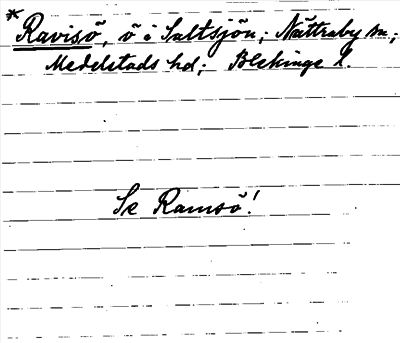 * Ravisö, ö i Saltsjön; Nättraby sn;
Medelstads hd; Blekinge l.
Se Ramsö!